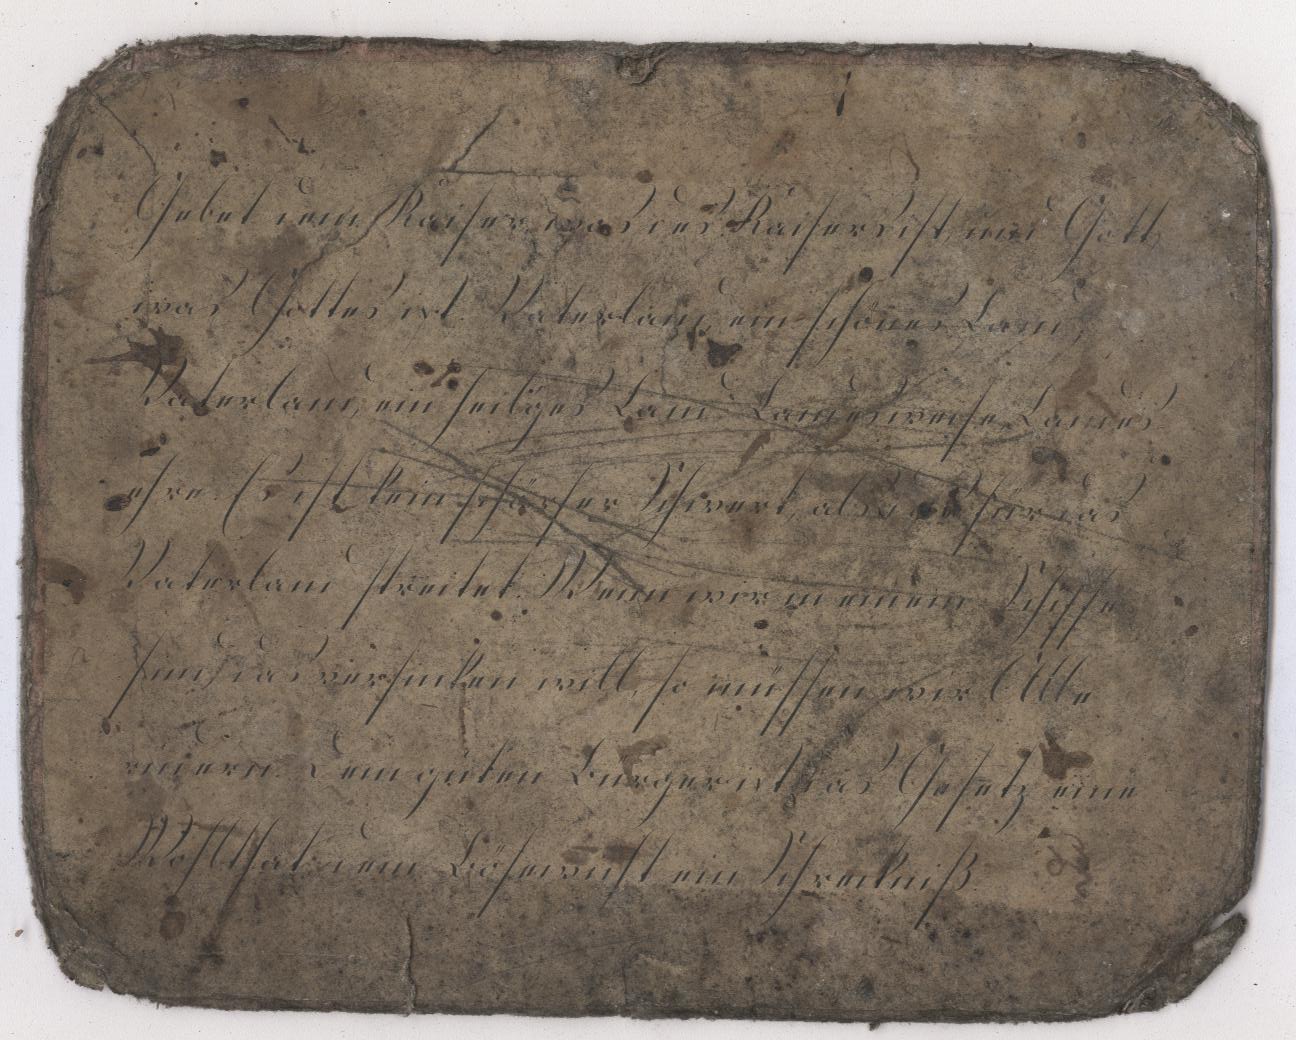 Gebet dem Kaiser, was des Kaisers ist, und Gott,
was Gottes ist. Vaterland, ein schönes Land,
Vaterland, ein heiliges Land. Landesweise, Landes
ehre. Es ist kein schärfer Schwert, als das für das
Vaterland streitet. Wenn wir in einem Schiffe
sind, das versinken will, so müssen wir Alle
rudern. Dem guten Bürger ist das Gesetz eine
Wohlthat, dem Bösewicht ein Schreckniß.